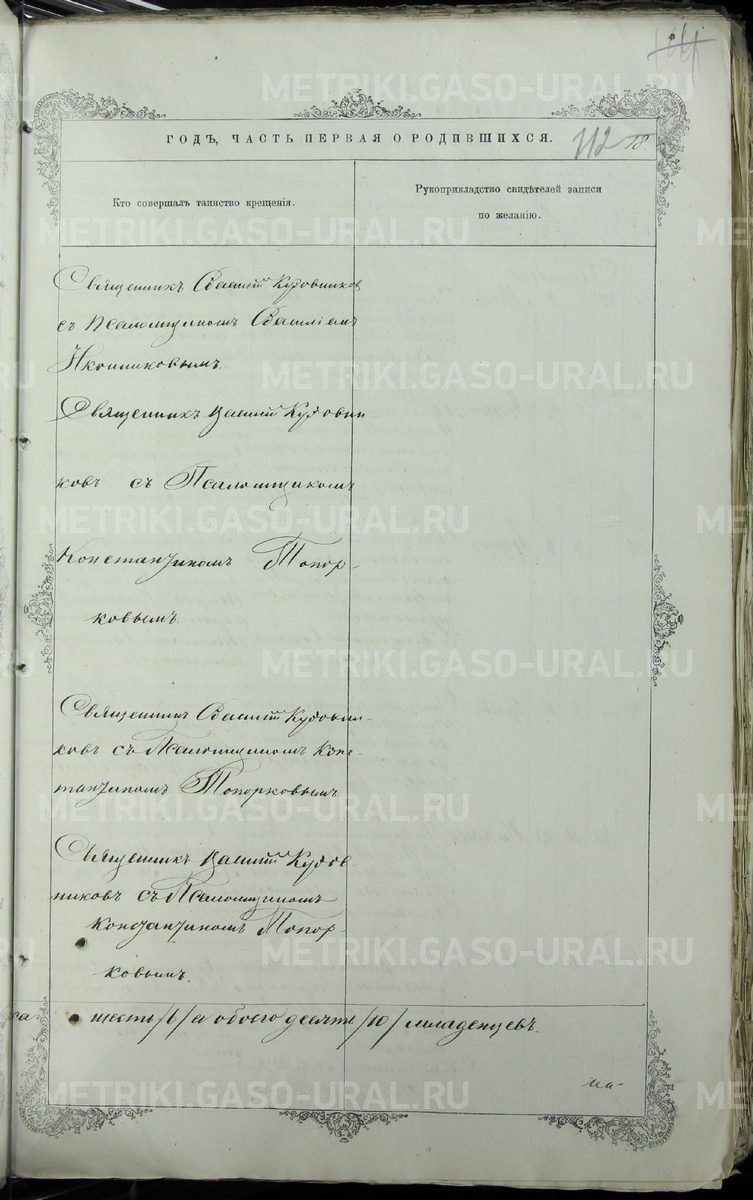 112
18
ГОДЪ, ЧАСТЬ ПЕРВАЯ О РОДИВШИХСЯ.
Кто совершалъ таинство крещенія.
Рукоприкладство свидѣтелей записи
по желанію.
Священникъ Василій Кудовников
съ Псаломщикомъ Василіемъ
Иконниковымъ.
Священникъ Василій Кудовни
ковъ съ Псаломщикомъ
Константиномъ Топор-
ковымъ.
Священникъ Василій Кудовни-
ковъ съ Псаломщикомъ Конс-
тантиномъ Топорковымъ
Священникъ Василій Кудов-
никовъ съ Псаломщикомъ
Константиномъ Топор-
ковымъ.
шесть /6/ а обоего десять /10/ младенцевъ.
METRIKI.GASO-URAL.RU